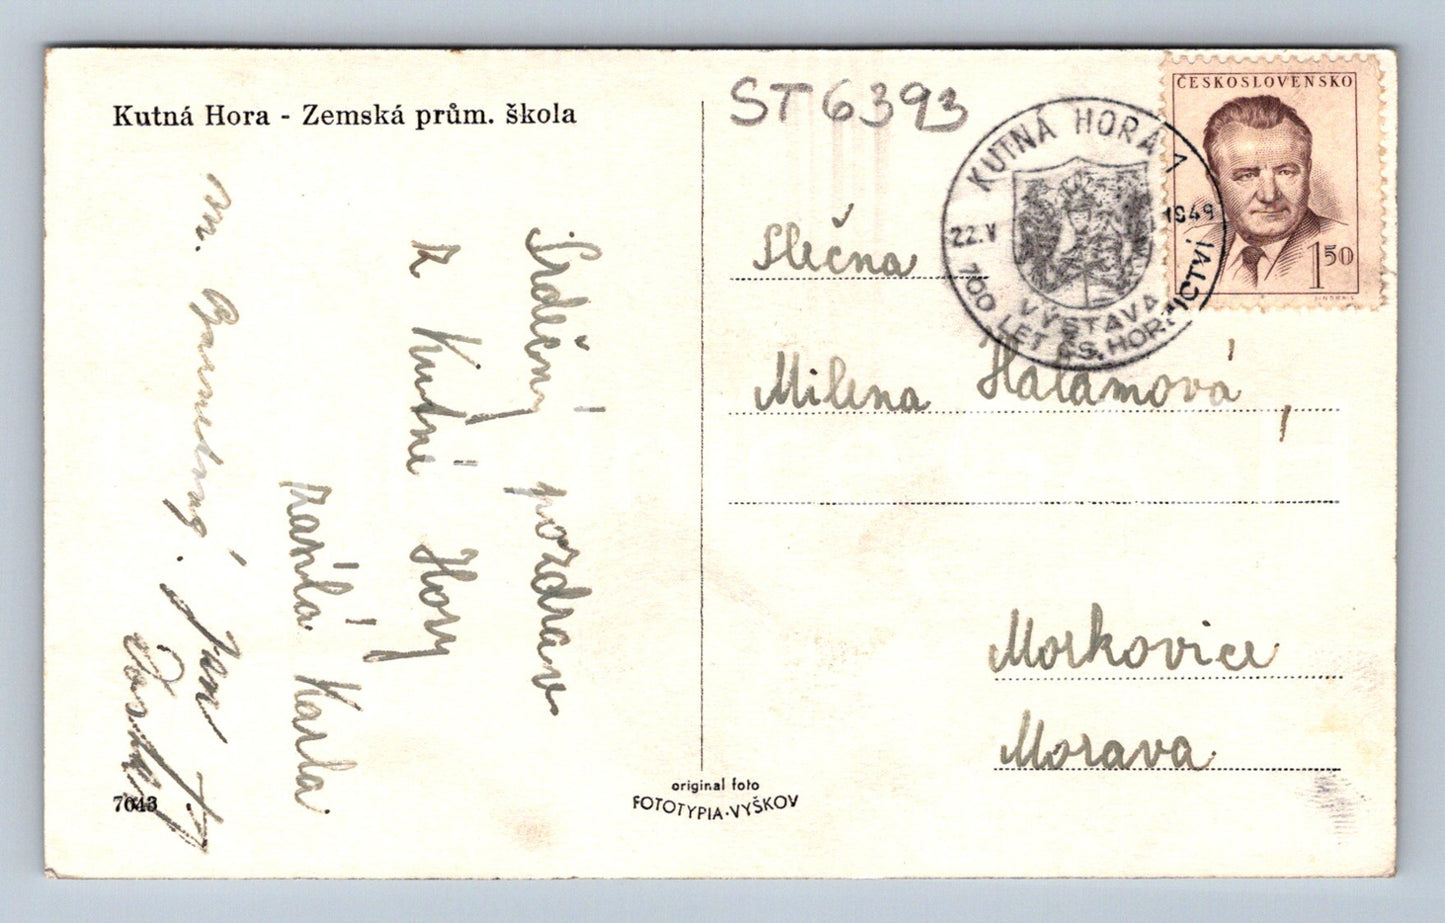 Kutná Hora - Zemská prům. škola
ST 6393
KUTNÁ HORA 1
22.V 1949
VÝSTAVA
700 LET ČS. HORNICTVÍ
ČESKOSLOVENSKO
1 50
Slečna
Milena Halamová,
Morkovice
Morava
Srdečný pozdrav
z Kutné Hory
Karla
7643
original foto
FOTOTYPIA-VYŠKOV